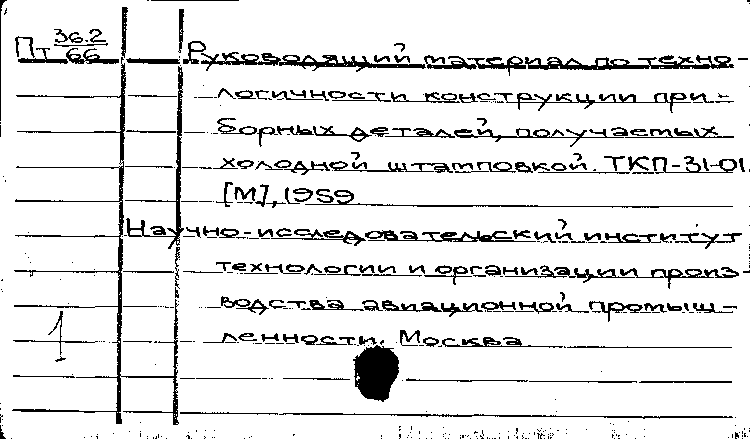 Пт 36.2/66 Руководящий материал по техно-
логичности конструкции при-
борных деталей, получаемых
холодной штамповкой. ТКП-31-01.
[М], 1959
Научно-исследовательский институт
технологии и организации произ-
водства авиационной промыш-
1
ленности. Москва